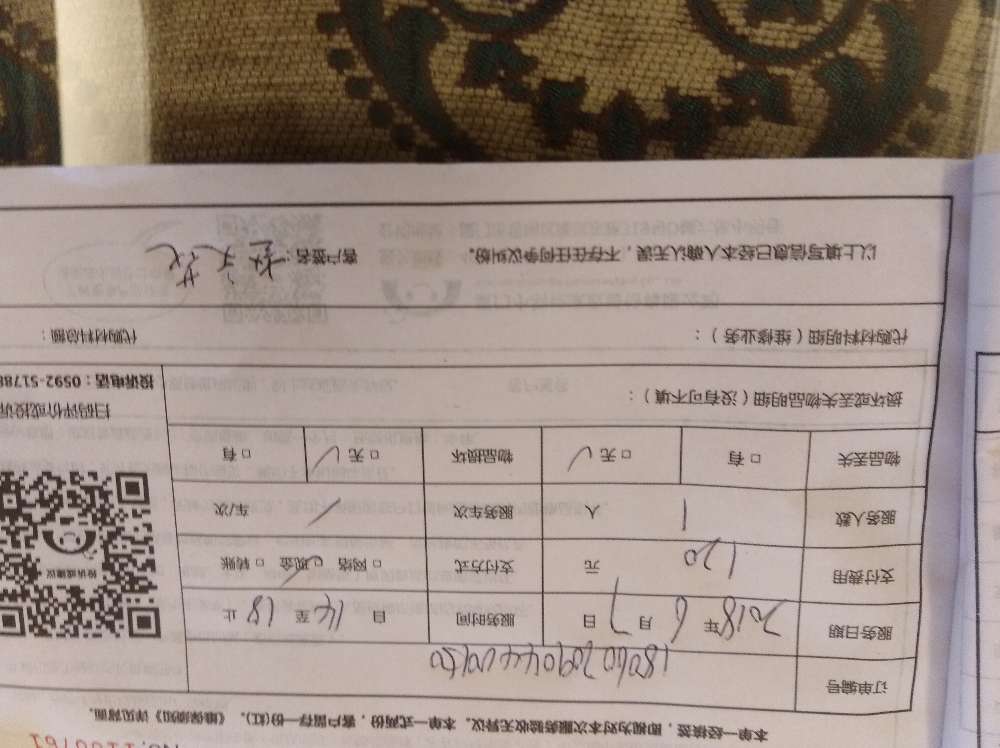 本单一经核签，即视为对本次服务验收无异议。本单一式两份，客户留存一份(红)。《雇保须知》详见背面。
订单编号
服务日期 2018年6月7日 服务时间 自14至18止
支付费用 120 元 支付方式 □网络 □现金 □转账
服务人数 1 人 服务车次 / 车/次
物品丢失 □有 □无 物品损坏 □无 □有
投诉或建议
扫码评价或投诉
投诉电话：0592-5178
损坏或丢失物品明细（没有可不填）：
代购材料明细（维修业务）： 代购材料总额：
以上填写信息已经本人确认无误，不存在任何争议纠纷。 客户签名：